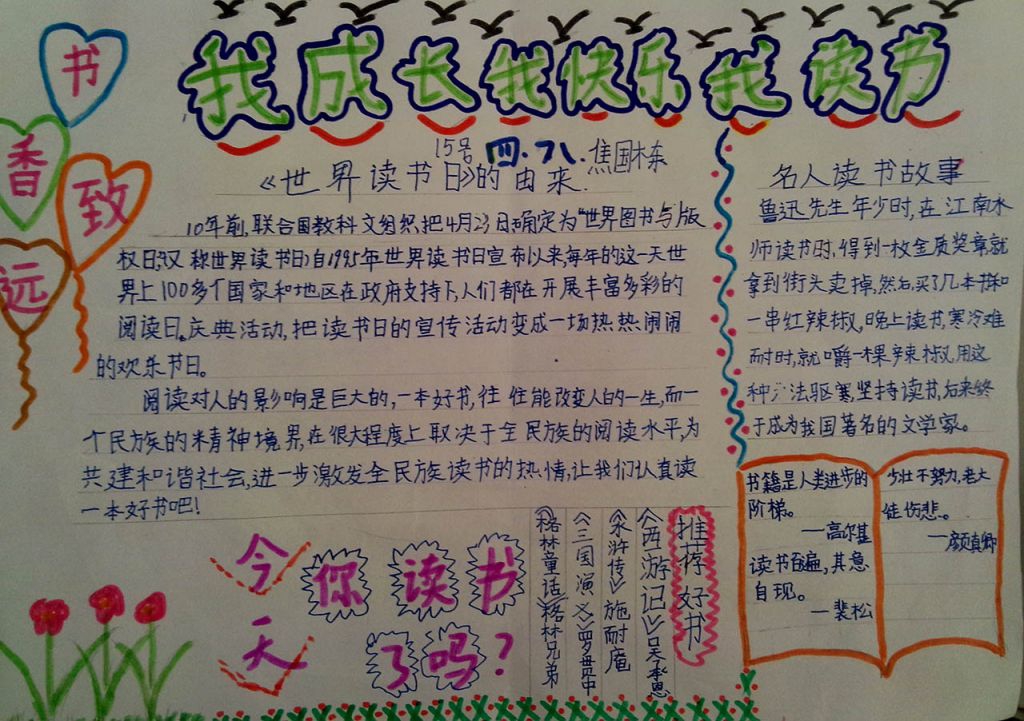 书
香
致
远
我成长我快乐我读书
15号 四.7八.焦国栋
《世界读书日》的由来.
10年前,联合国教科文组织把4月23日确定为“世界图书与版
权日,汉称世界读书日,自1995年世界读书日宣布以来,每年的这一天世
界上100多个国家和地区在政府支持下,人们都在开展丰富多彩的
阅读日。庆典活动,把读书日的宣传活动变成一场热热闹闹
的欢乐节日。
阅读对人的影响是巨大的,一本好书,往往能改变人的一生,而一
个民族的精神境界,在很大程度上取决于全民族的阅读水平,为
共建和谐社会,进一步激发全民族读书的热情,让我们认真读
一本好书吧!
名人读书故事
鲁迅先生年少时,在江南水
师读书时,得到一枚金质奖章,就
拿到街头卖掉,然后,买了几本书和
一串红辣椒,晚上读书,寒冷难
耐时,就嚼一棵辣椒,用这
种方法驱寒坚持读书,后来终
于成为我国著名的文学家。
今天
你读书
了吗?
推荐好书
《西游记》吴承恩
《水浒传》施耐庵
《三国演义》罗贯中
《格林童话》格林兄弟
书籍是人类进步的
阶梯。
—高尔基
读书百遍,其意
自现。
—裴松
少壮不努力,老大
徒伤悲。
—颜真卿